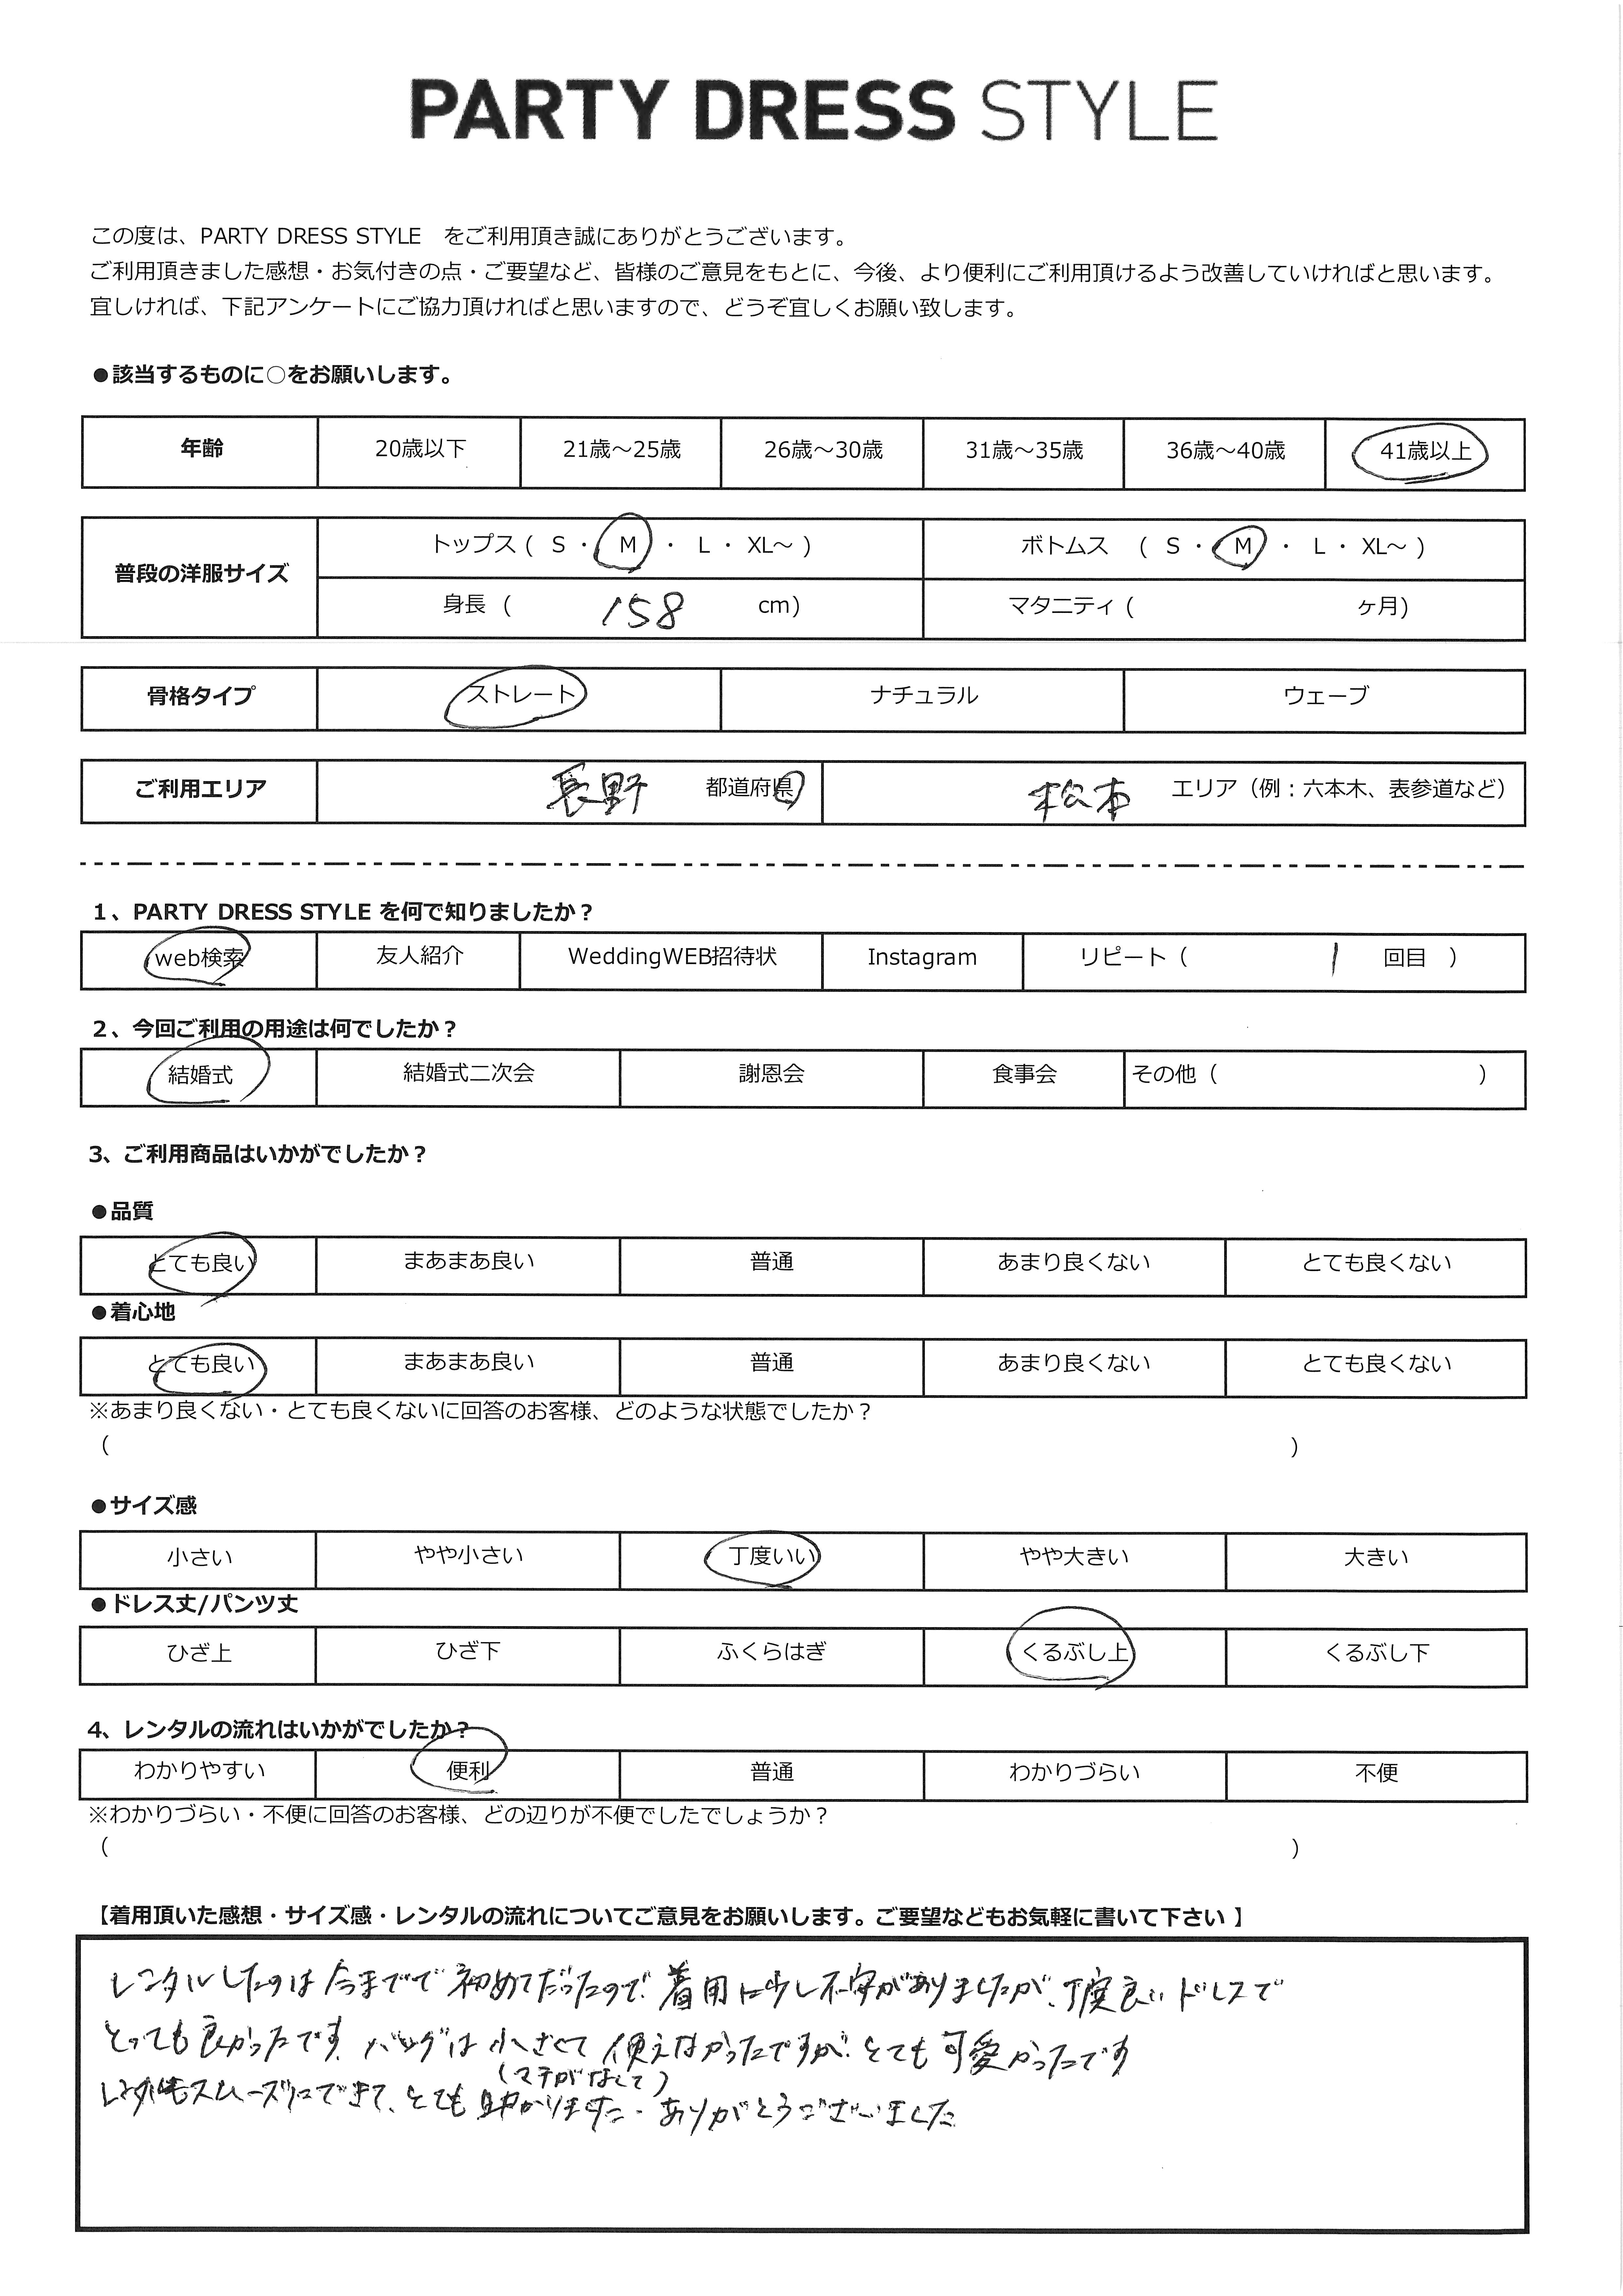 PARTY DRESS STYLE
この度は、PARTY DRESS STYLE をご利用頂き誠にありがとうございます。
ご利用頂きました感想・お気付きの点・ご要望など、皆様のご意見をもとに、今後、より便利にご利用頂けるよう改善していければと思います。
宜しければ、下記アンケートにご協力頂ければと思いますので、どうぞ宜しくお願い致します。
●該当するものに○をお願いします。
年齢 20歳以下 21歳～25歳 26歳～30歳 31歳～35歳 36歳～40歳 41歳以上
普段の洋服サイズ
トップス ( S ・ M ・ L ・ XL～ ) ボトムス ( S ・ M ・ L ・ XL～ )
身長 ( 158 cm) マタニティ ( ヶ月)
骨格タイプ ストレート ナチュラル ウェーブ
ご利用エリア 長野 都道府県 松本 エリア（例：六本木、表参道など）
1、PARTY DRESS STYLE を何で知りましたか？
web検索 友人紹介 WeddingWEB招待状 Instagram リピート（ 1 回目 ）
2、今回ご利用の用途は何でしたか？
結婚式 結婚式二次会 謝恩会 食事会 その他（ ）
3、ご利用商品はいかがでしたか？
●品質
とても良い まあまあ良い 普通 あまり良くない とても良くない
●着心地
とても良い まあまあ良い 普通 あまり良くない とても良くない
※あまり良くない・とても良くないに回答のお客様、どのような状態でしたか？
（ ）
●サイズ感
小さい やや小さい 丁度いい やや大きい 大きい
●ドレス丈/パンツ丈
ひざ上 ひざ下 ふくらはぎ くるぶし上 くるぶし下
4、レンタルの流れはいかがでしたか？
わかりやすい 便利 普通 わかりづらい 不便
※わかりづらい・不便に回答のお客様、どの辺りが不便でしたでしょうか？
（ ）
【着用頂いた感想・サイズ感・レンタルの流れについてご意見をお願いします。ご要望などもお気軽に書いて下さい 】
レンタルしたのは今までで初めてだったので、着用に少し不安がありましたが、丁度良いドレスで
とっても良かったです。バッグは小さくて使えなかったですが、とても可愛かったです
(マチがなくて)
もスムーズにできて、とても助かりました。ありがとうございました